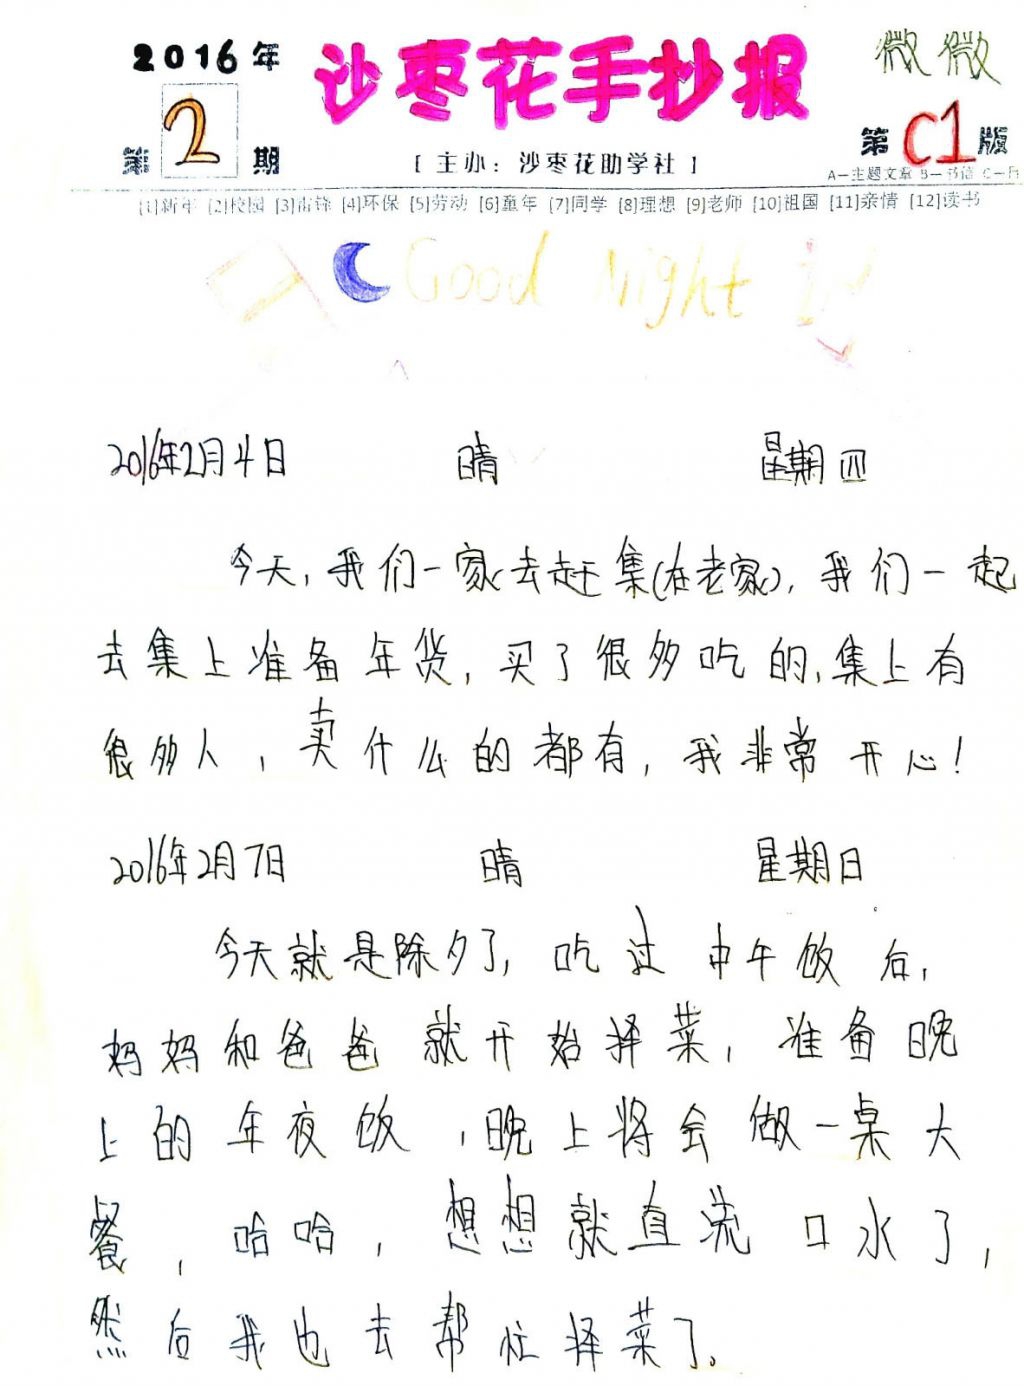 2016年
沙枣花手抄报
微微
第2期
[ 主办：沙枣花助学社 ]
第C1版
A—主题文章 B—书信 C—日
[1]新年 [2]校园 [3]雷锋 [4]环保 [5]劳动 [6]童年 [7]同学 [8]理想 [9]老师 [10]祖国 [11]亲情 [12]读书
Good Night
2016年2月4日 晴 星期四
今天，我们一家去赶集(在老家)，我们一起
去集上准备年货，买了很多吃的，集上有
很多人，卖什么的都有，我非常开心！
2016年2月7日 晴 星期日
今天就是除夕了，吃过中午饭后，
妈妈和爸爸就开始择菜，准备晚
上的年夜饭，晚上将会做一桌大
餐，哈哈，想想就直流口水了，
然后我也去帮忙择菜了。